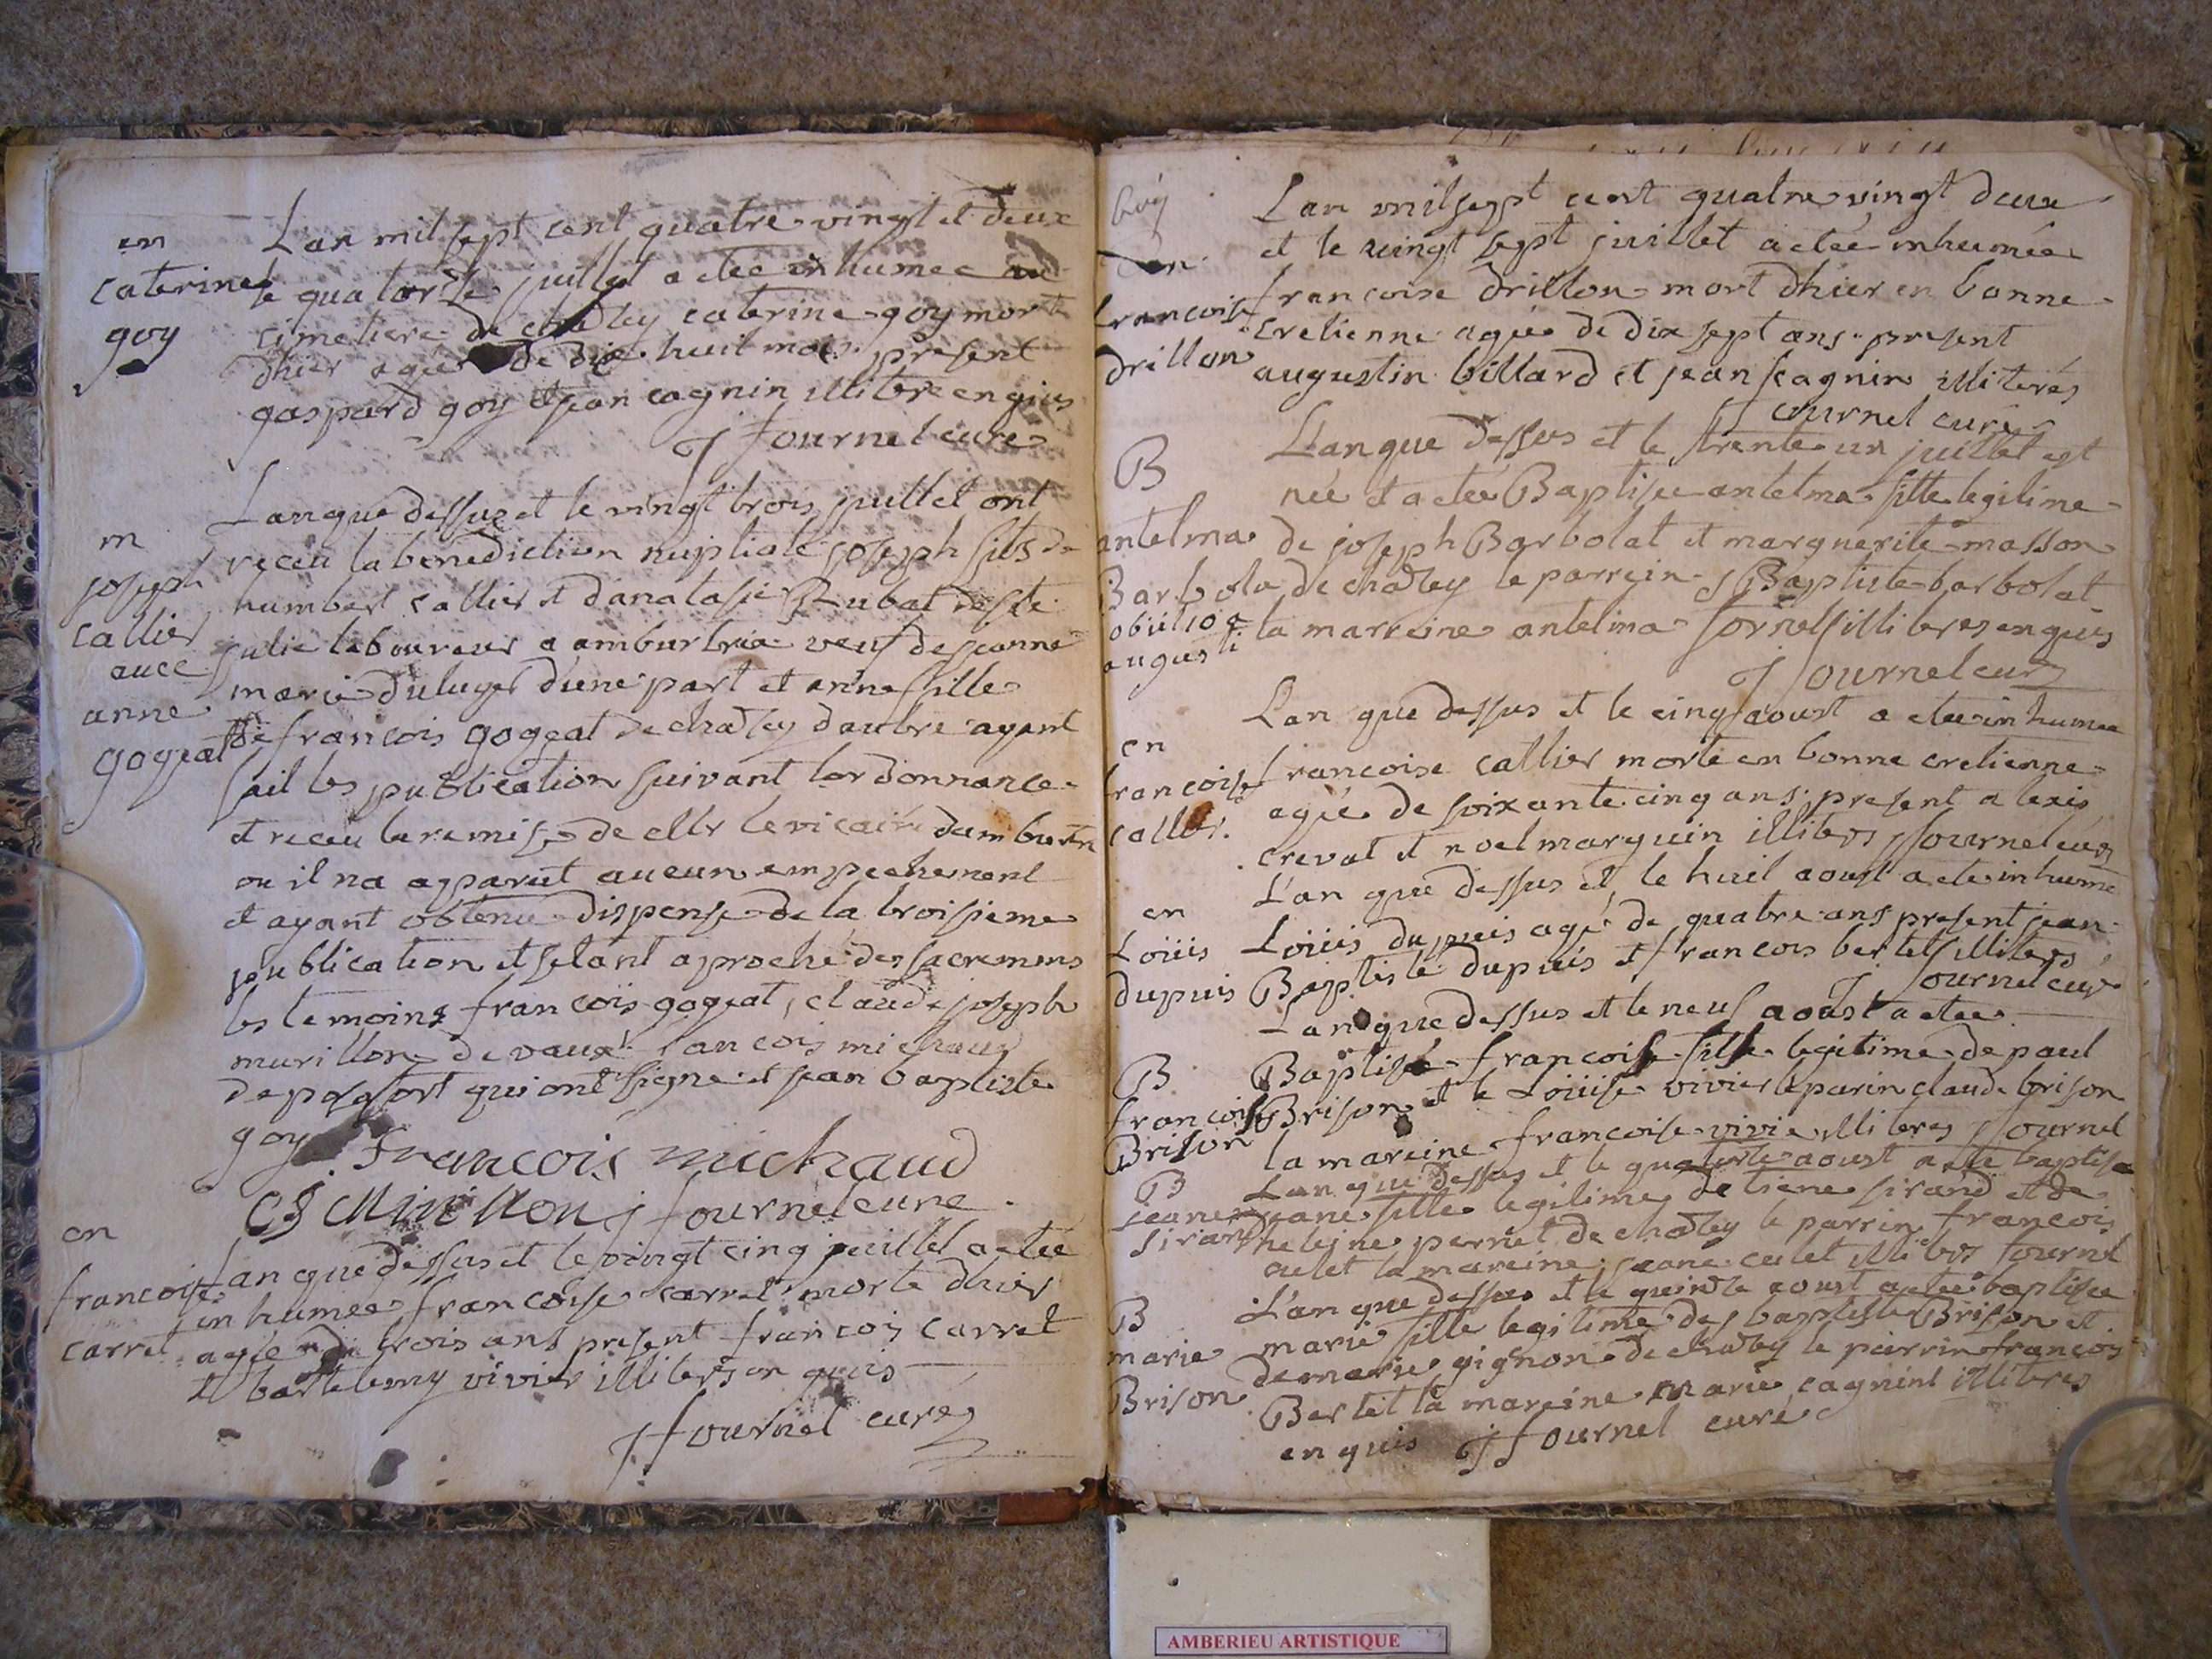 en
caterine
goy
Lan mil sept cent quatre vingt et deux
le quatorze juillet a etee inhumee au
cimetiere de chaley caterine goy mort
dhier agee de dix huit mois present
gaspard goy et jean cagnin illitre enquis
j fournel cure
m
joseph
callier
avec
anne
gogeat
Lanque dessus et le vingt trois juillet ont
receu la benediction nuptiale joseph fils de
humbert callier et danatasie Rubat de ste
julie laboureur a ambutrix veuf de jeanne
marie duluges d'une part et anne fille
de francois gogeat de chaley dautre ayant
fait les publication suivant lordonnance
et receu la remise de elle le vicaire dambutri
ou il na aparut aucun empechement
et ayant obtenu dispense de la troisieme
publication et setant aproche des sacremens
les temoins francois gogeat, claude joseph
murillon de vaux francois michaud
de qui ont signe et jean baptiste
goy francois michaud
CJ j fournel cure
en
francoise
carret
Lan que dessus et le vingt cinq juillet a etee
inhumee francoise carret morte dhier
agee de trois ans present francois carret
et bartelemy vivier illiters en quis
j fournel cure
en
francoise
drillon
Lan mil sept cent quatre vingt deux
et le vingt sept juillet a etee inhumée
francoise drillon mort dhier en bonne
cretienne agée de dix sept ans present
augustin billard et jean cagnin illiterés
j fournel curé
B
antelma
Barbola
obiit 10 e
augusti
L'an que dessus et le trente un juillet est
née et a etee Baptisee antelma fille legitime
de joseph Barbolat et marguerite masson
de chaley le parrein j Baptiste barbolat
la marreine antelma fornel illiteres enquis
j fournel cur
en
francoise
callier
L'an que dessus et le cinq aoust a etee inhumee
francoise callier morte en bonne cretienne
agée de soixante cinq ans present alexis
creval et noel marguin illiters j fournel cur
en
Loüis
dupuis
L'an que dessus et le huit aoust a ete inhumé
Loüis dupuis agé de quatre ans present jean
Baptiste dupuis et francois bertet illiters
j fournel cur
B
francoise
Brison
Lan que dessus et le neuf aoust a etee
Baptisé francoise fille legitime de paul
Brison et de Loüise vivier le parin claude brison
la mareine francoise vivie illiteres j fournel
B
jeane
sirand
Lan que dessus et le quatorze aoust a ete baptise
jeane fille legitime de tiene sirand et de
heleine perret de chaley le parrin francois
culet la mareine jeane culet illiters fournel
B
marie
Brison
L'an que dessus et le quinze aoust a etee baptisee
marie fille legitime de j baptiste Brison et
de marie gignon de chaley le parrin francois
Bertet la mareine marie cagnin illitres
en quis j fournel curé
AMBERIEU ARTISTIQUE